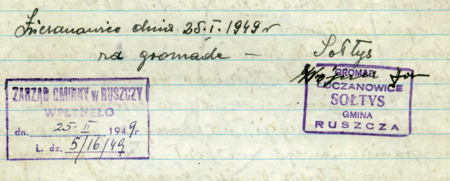 dnia 25.I.1949 r
za gromadę – Sołtys
ZARZĄD GMINNY w RUSZCZY
WPŁYNĘŁO
dn. 25-II 1949r.
L. dz. 5/16/49
GROMADY
ŁUCZANOWICE
SOŁTYS
GMINA
RUSZCZA